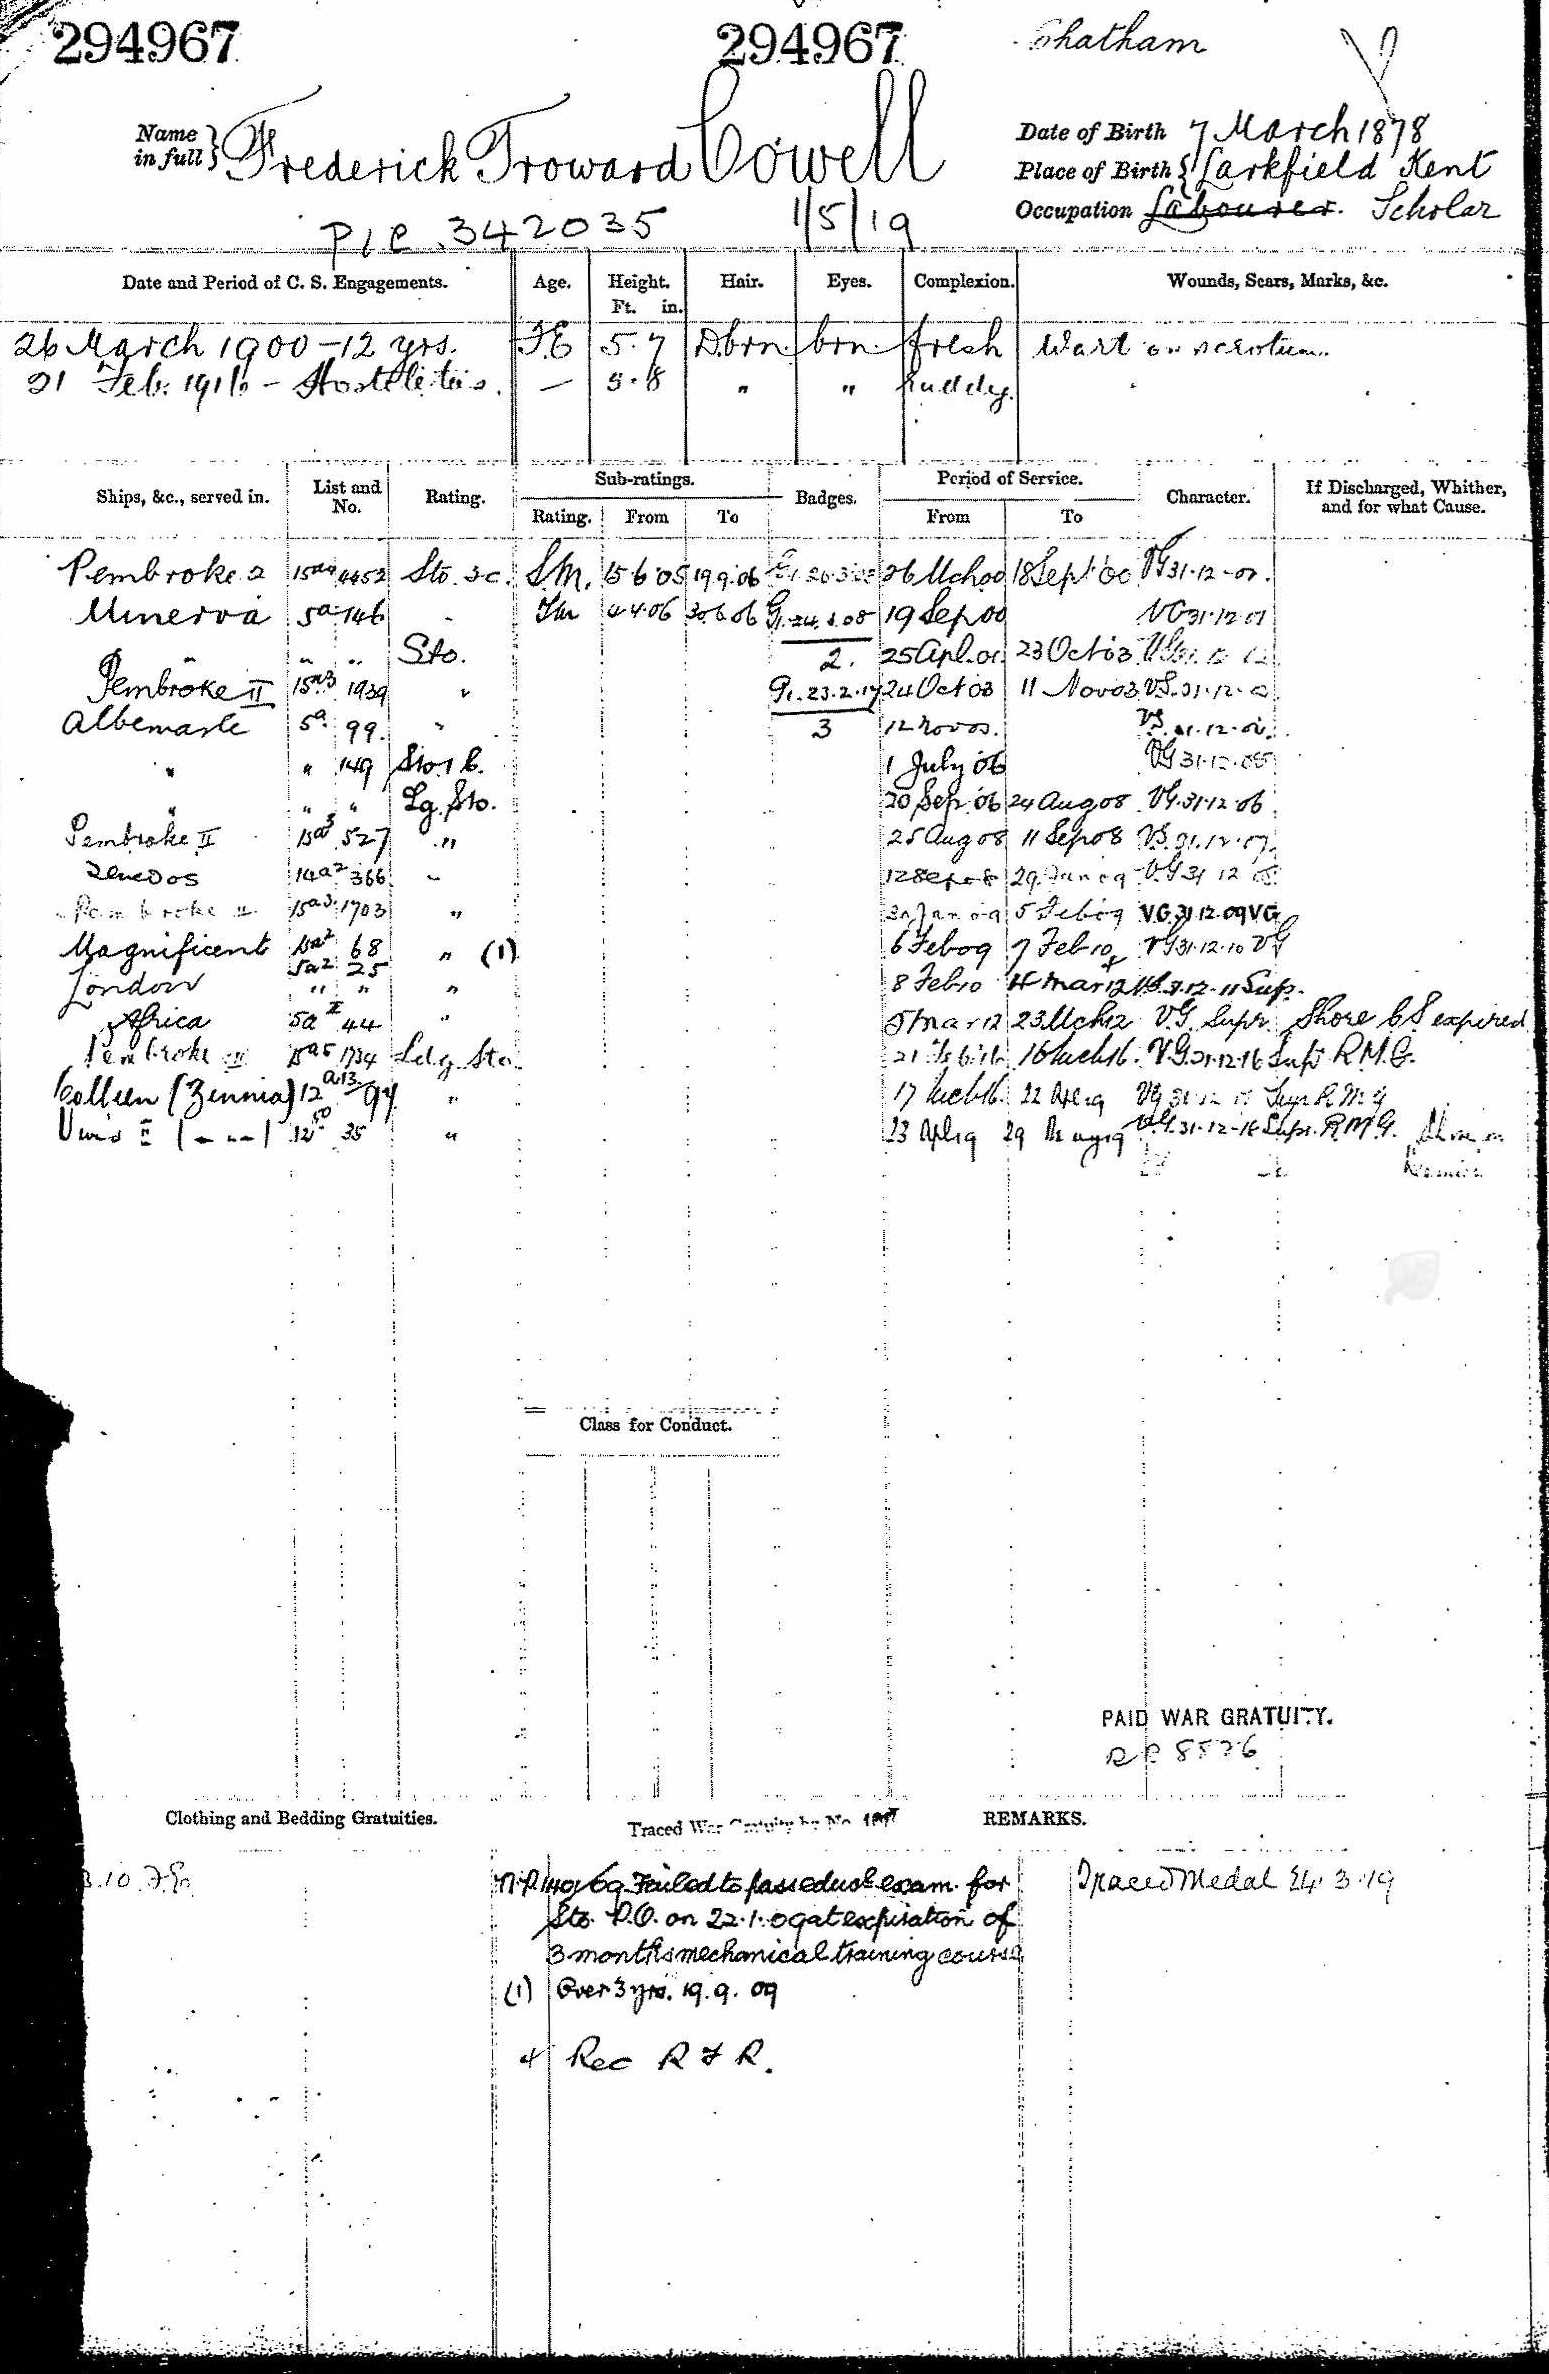 294967 294967 Chatham
Name in full } Frederick Troward Cowell
Date of Birth 7 March 1878
Place of Birth { Larkfield Kent
Occupation Labourer. Scholar
P/C 342035 1/5/19
Date and Period of C. S. Engagements. Age. Height. Ft. in. Hair. Eyes. Complexion. Wounds, Scars, Marks, &c.
26 March 1900 - 12 yrs. 5.7 D.brn. brn. fresh Wart on scrotum.
21 Feb. 1916 - Hostilities. — 5.8 " " Ruddy.
Ships, &c., served in. List and No. Rating. Sub-ratings. Badges. Period of Service. Character. If Discharged, Whither, and for what Cause.
Rating. From To From To
Pembroke 2 4452 Sto. 2c. S.M. 15.6.05 19.9.06 26 Mch 00 18 Sept 00 VG 31.12.00.
Minerva 5a 146 " 4.4.06 30.6.06 19 Sep 00 VG 31.12.01
" " " Sto. 2. 25 Apl. 01 23 Oct 03
Pembroke II 15a3 1939 " G1. 23.2.17 24 Oct 03 11 Nov 03
Albemarle 5a 99. " 3 12 Nov 03.
" " 149 Sto. 1 c. 1 July 06 VG 31.12.05
" " " Lg. Sto. 20 Sep. 06 24 Aug 08 VG. 31.12.06
Pembroke II 15a3 527 " 25 Aug 08 11 Sep 08 VG. 31.12.07.
Tenedos 14a2 366 " 12 Sep 08 29 Jan 09 VG 31 12 08
Pembroke II 15a3 1703 " 30 Jan 09 5 Feb 09 VG. 31.12.09 VG
Magnificent 15a2 68 " (1) 6 Feb 09 7 Feb 10 VG 31.12.10 VG
5a2 25
London " " " 8 Feb 10 4 Mar 12 VG. 31.12.11 Sup.
Africa 5a II 44 " 5 Mar 12 23 Mch 12 V.G. Supr. Shore C S expired
Pembroke II 15a5 1734 Ldg Sto. 21 Feb 16 16 Mch 16. V.G. 31.12.16 Sup R.M.G.
Colleen (Zinnia) 12 a.13 94 " 17 Mch 16. 22 Apl 19 VG 31 12 Supr R.M.G
35 " 23 Apl 19 29 May 19 V.G. 31-12-18 Supr. R.M.G.
Class for Conduct.
PAID WAR GRATUITY.
Clothing and Bedding Gratuities. Traced War Gratuity by No. REMARKS.
Failed to pass educl exam. for
Sto. P.O. on 22.1.09 at expiration of
3 months mechanical training course
(1) Over 3 yrs. 19.9.09
Rec R & R.
Traced Medal 24.3.19